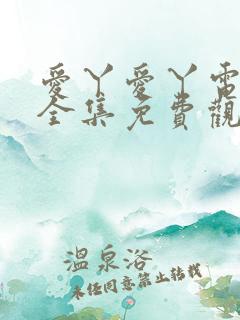 愛丫愛丫電
全集免費觀
溫泉浴
未經同意禁止轉載